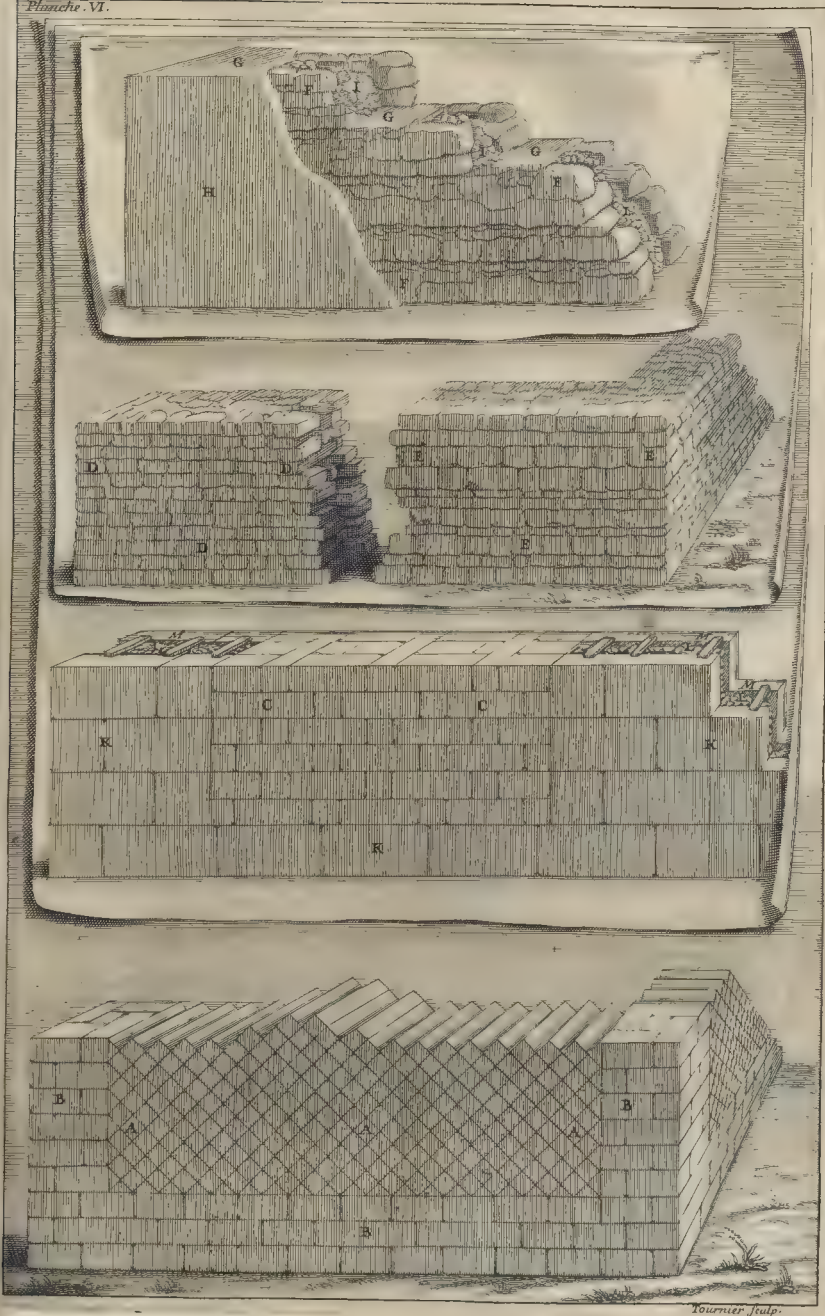 Planche. VI.
G
F I
G
H
I G
F
I
F
D D E E
D E
M M
M
C C
K K
K
B B
A A A
B
Tournier sculp.